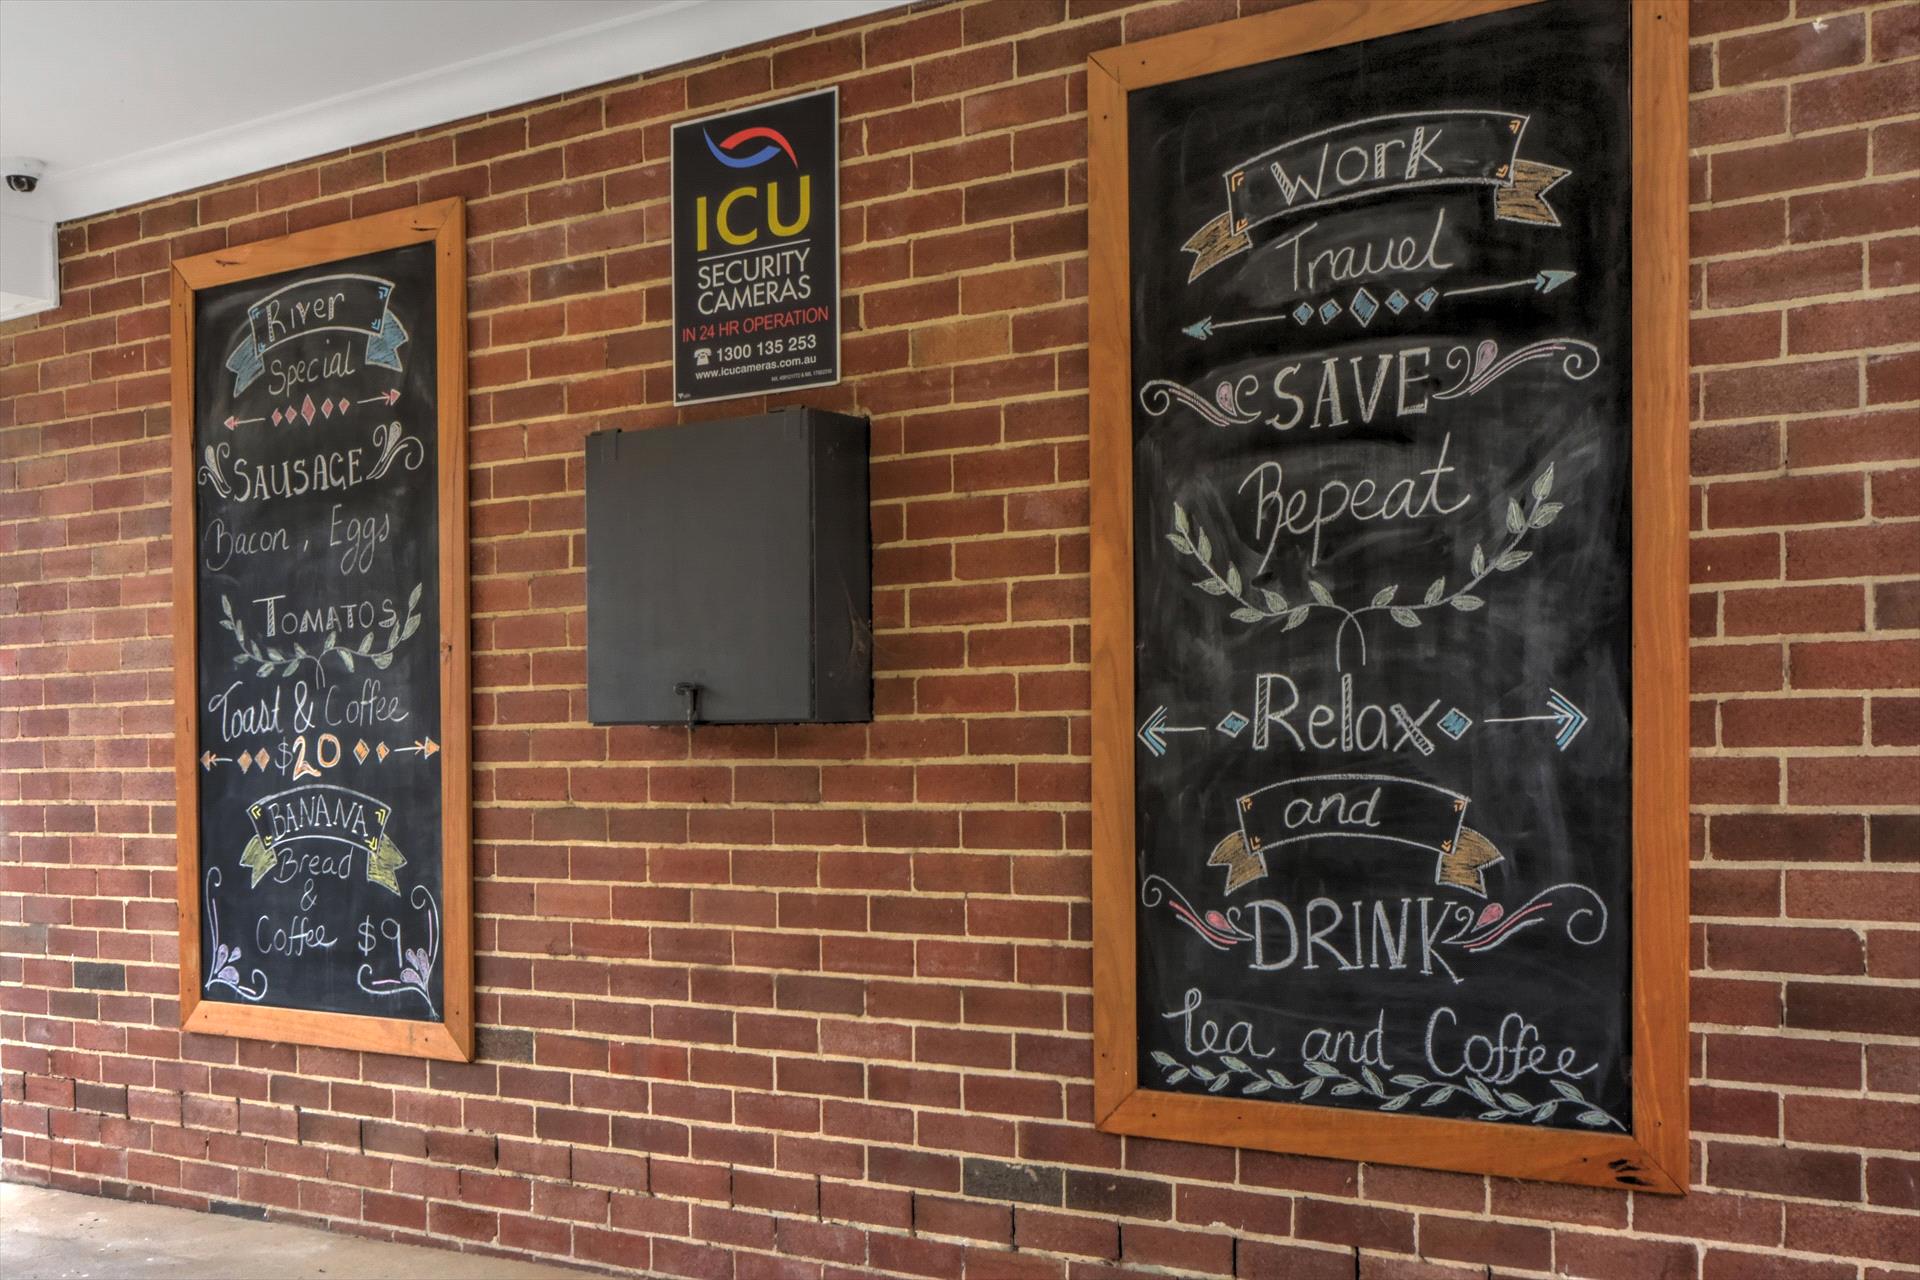 River
Special
SAUSAGE
Bacon, Eggs
TOMATOS
Toast & Coffee
$20
BANANA
Bread
&
Coffee $9
ICU
SECURITY
CAMERAS
IN 24 HR OPERATION
☎ 1300 135 253
www.icucameras.com.au
Work
Travel
SAVE
Repeat
Relax
and
DRINK
Tea and Coffee